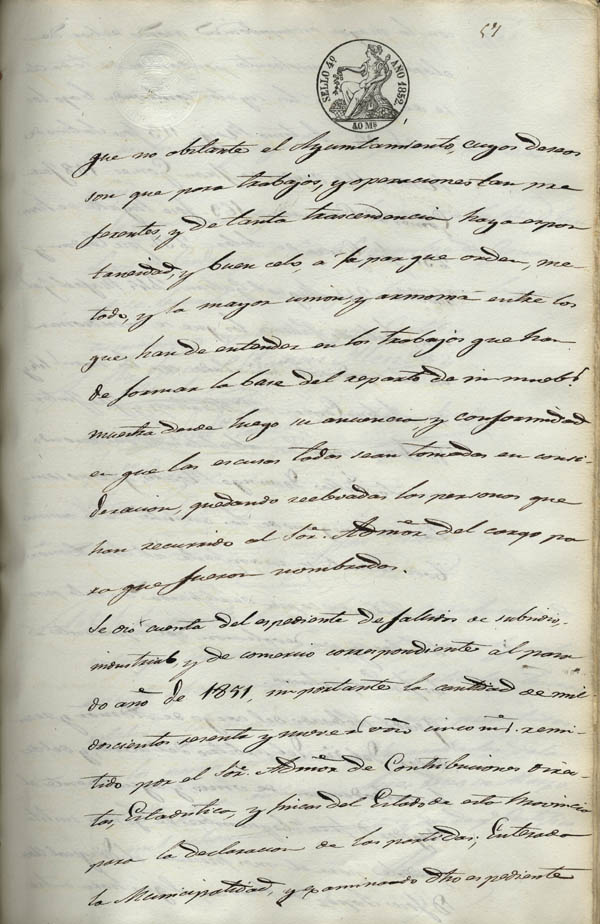 SELLO 4º AÑO 1852
40 Ms
que no obstante el Ayuntamiento, cuyos deseos
son que para trabajos, y operaciones tan pre
ferentes, y de tanta trascendencia haya expon
taneidad, y buen celo, a la par que orden, me-
todo, y la mayor union, y armonia entre los
que han de entender en los trabajos que han
de formar la base del reparto de inmueb.s
muestra desde luego su anuencia, y conformidad
en que las escusas todas sean tomadas en consi-
deracion, quedando relevadas las personas que
han recurrido al Sor. Admor del cargo pa
ra que fueron nombrados.
Se dió cuenta del espediente de fallidos de subsidio,
industrial, y de comercio correspondiente al pasa
do año de 1851, importante la cantidad de mil
doscientos sesenta y nueve rs von cinco ms remi-
tido por el Sor. Admor de Contribuciones direc
tas, Estadistica, y fincas del Estado de esta Provincia
para la declaracion de las partidas; Enterada
la Municipalidad, y examinando dho espediente